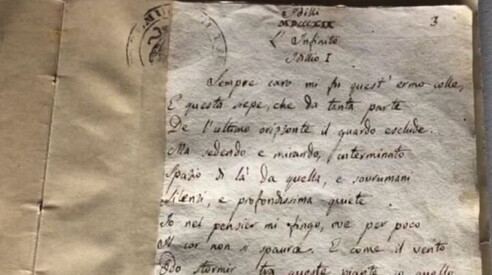 Idilli
MDCCCXIX
3
L' Infinito
Idillio I
Sempre caro mi fu quest'ermo colle,
E questa siepe, che da tanta parte
De l'ultimo orizzonte il guardo esclude.
Ma sedendo e mirando, interminato
Spazio di là da quella, e sovrumani
Silenzi, e profondissima quiete
Io nel pensier mi fingo, ove per poco
Il cor non si spaura. E come il vento
Odo stormir tra queste piante, io quello